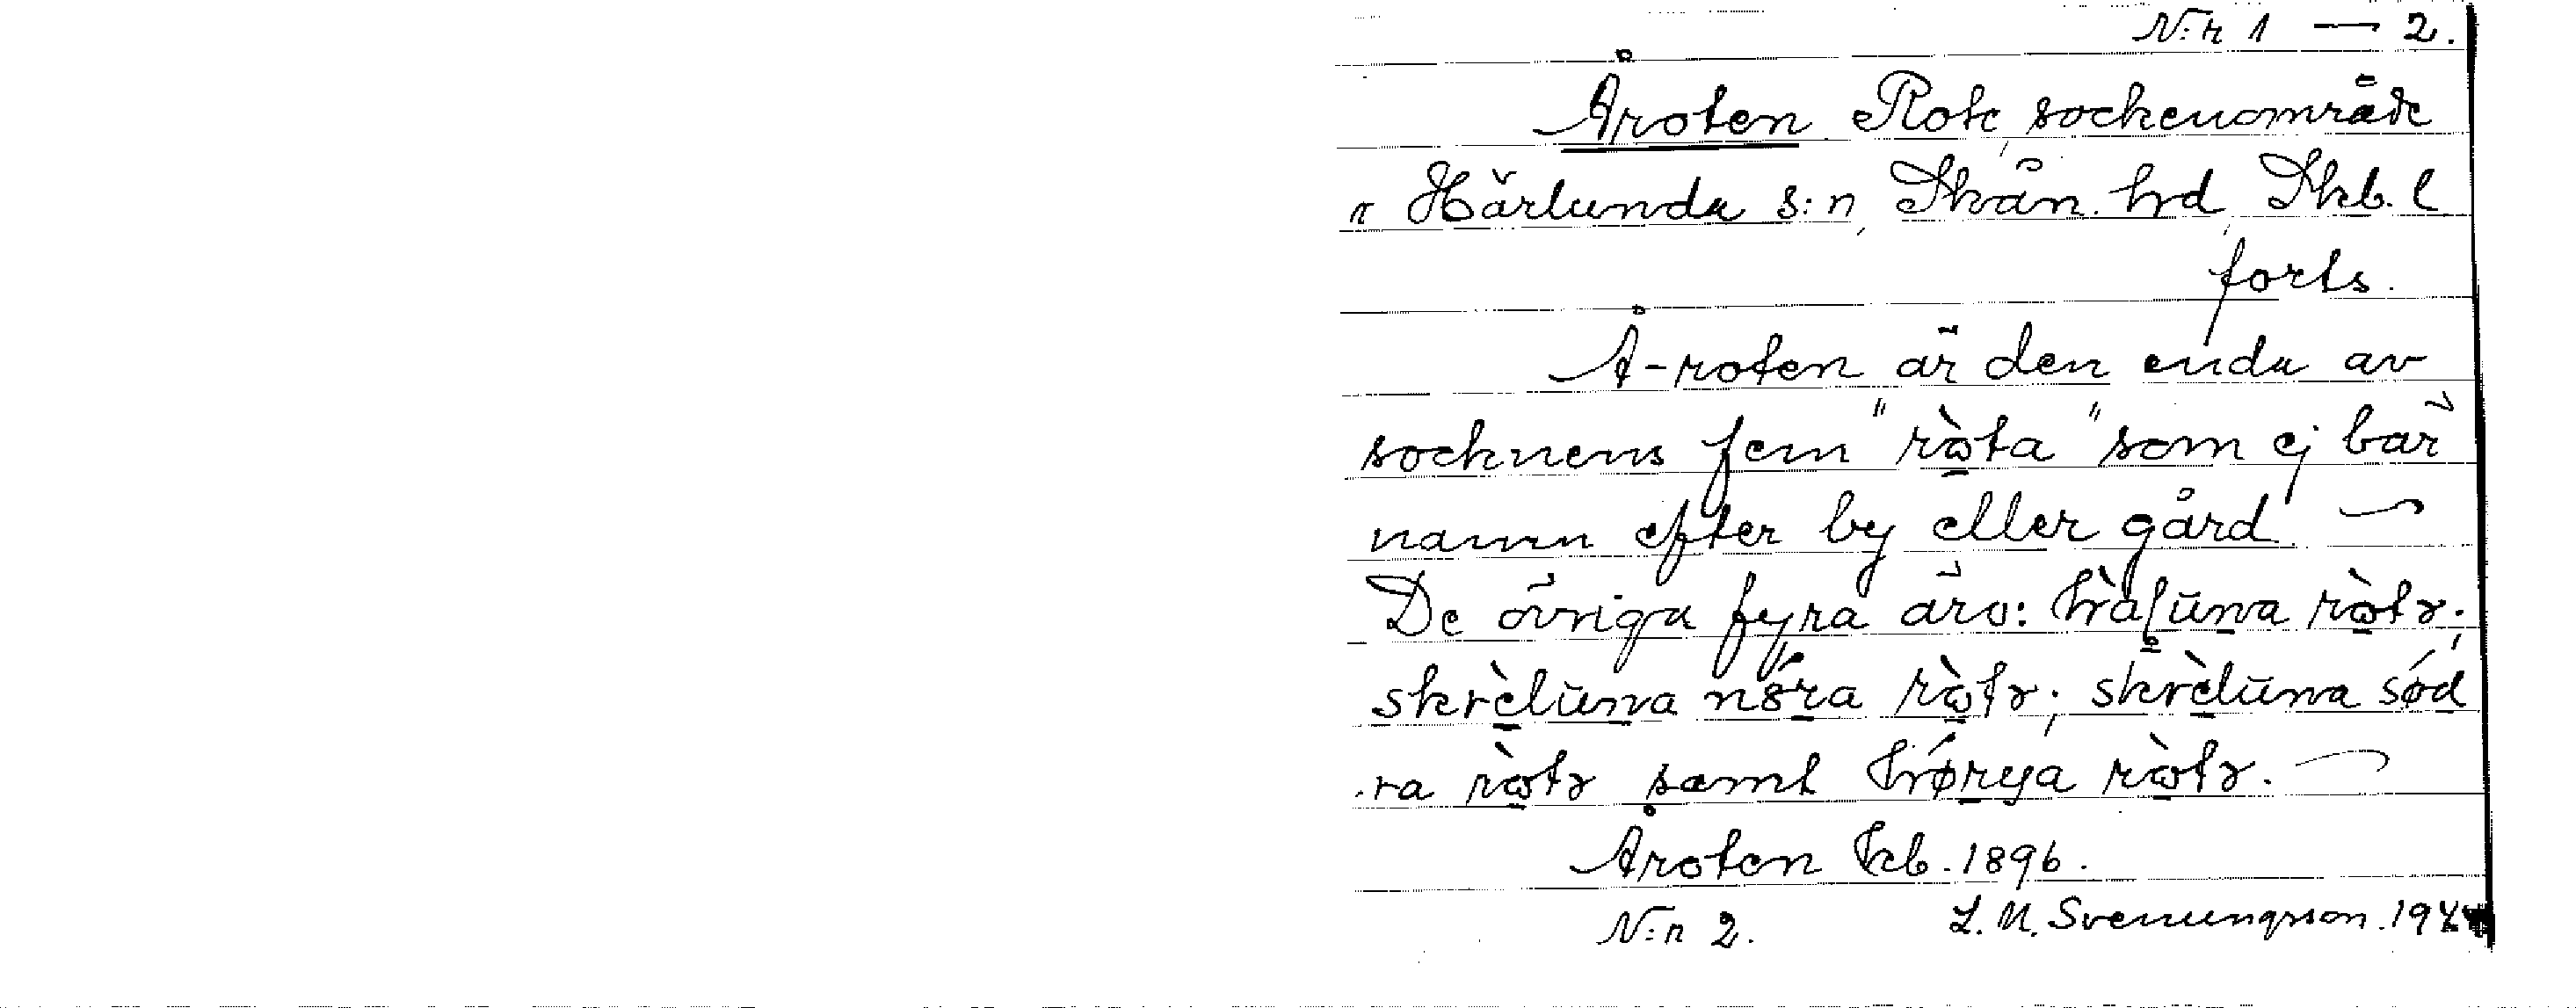 N:r 1 — 2.
Åroten Rote, sockenområde
i Härlunda s:n, Skån. hd, Skb. l
forts.
Å-roten är den enda av
socknens fem "ròta" som ej bär
namn efter by eller gård. —
De övriga fyra äro:
skrèluna nóra ròtɤ; skrèluna sód
ra ròtɤ samt
Åroten Kb. 1896.
N:r 2. L. M. Svenungsson.